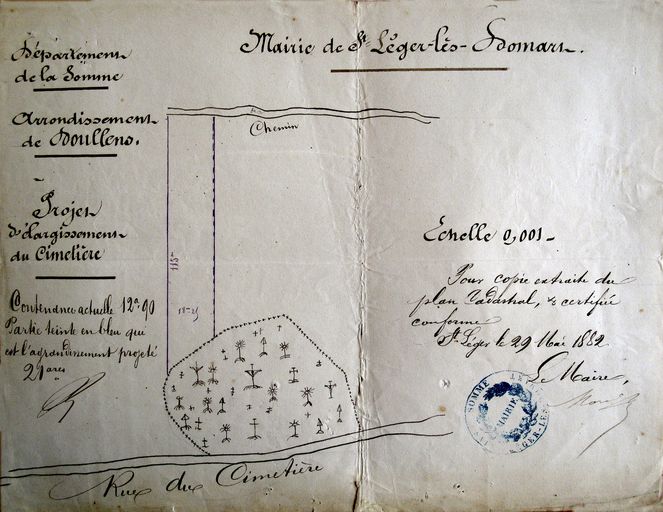 Département
de la Somme
Arrondissement
de Doullens.
Projet
d'élargissement
du Cimetière
Contenance actuelle 12ª.90
Partie teinte en bleu qui
est l'agrandissement projeté
21 ares
Mairie de St Léger-lès-Domart.
Chemin
115m
Rue du Cimetière
Echelle 0,001
Pour copie extraite du
plan Cadastral, & certifiée
conforme
St Léger le 29 Mai 1882
Le Maire,
SOMME
MAIRIE
LÉGER-LÈS